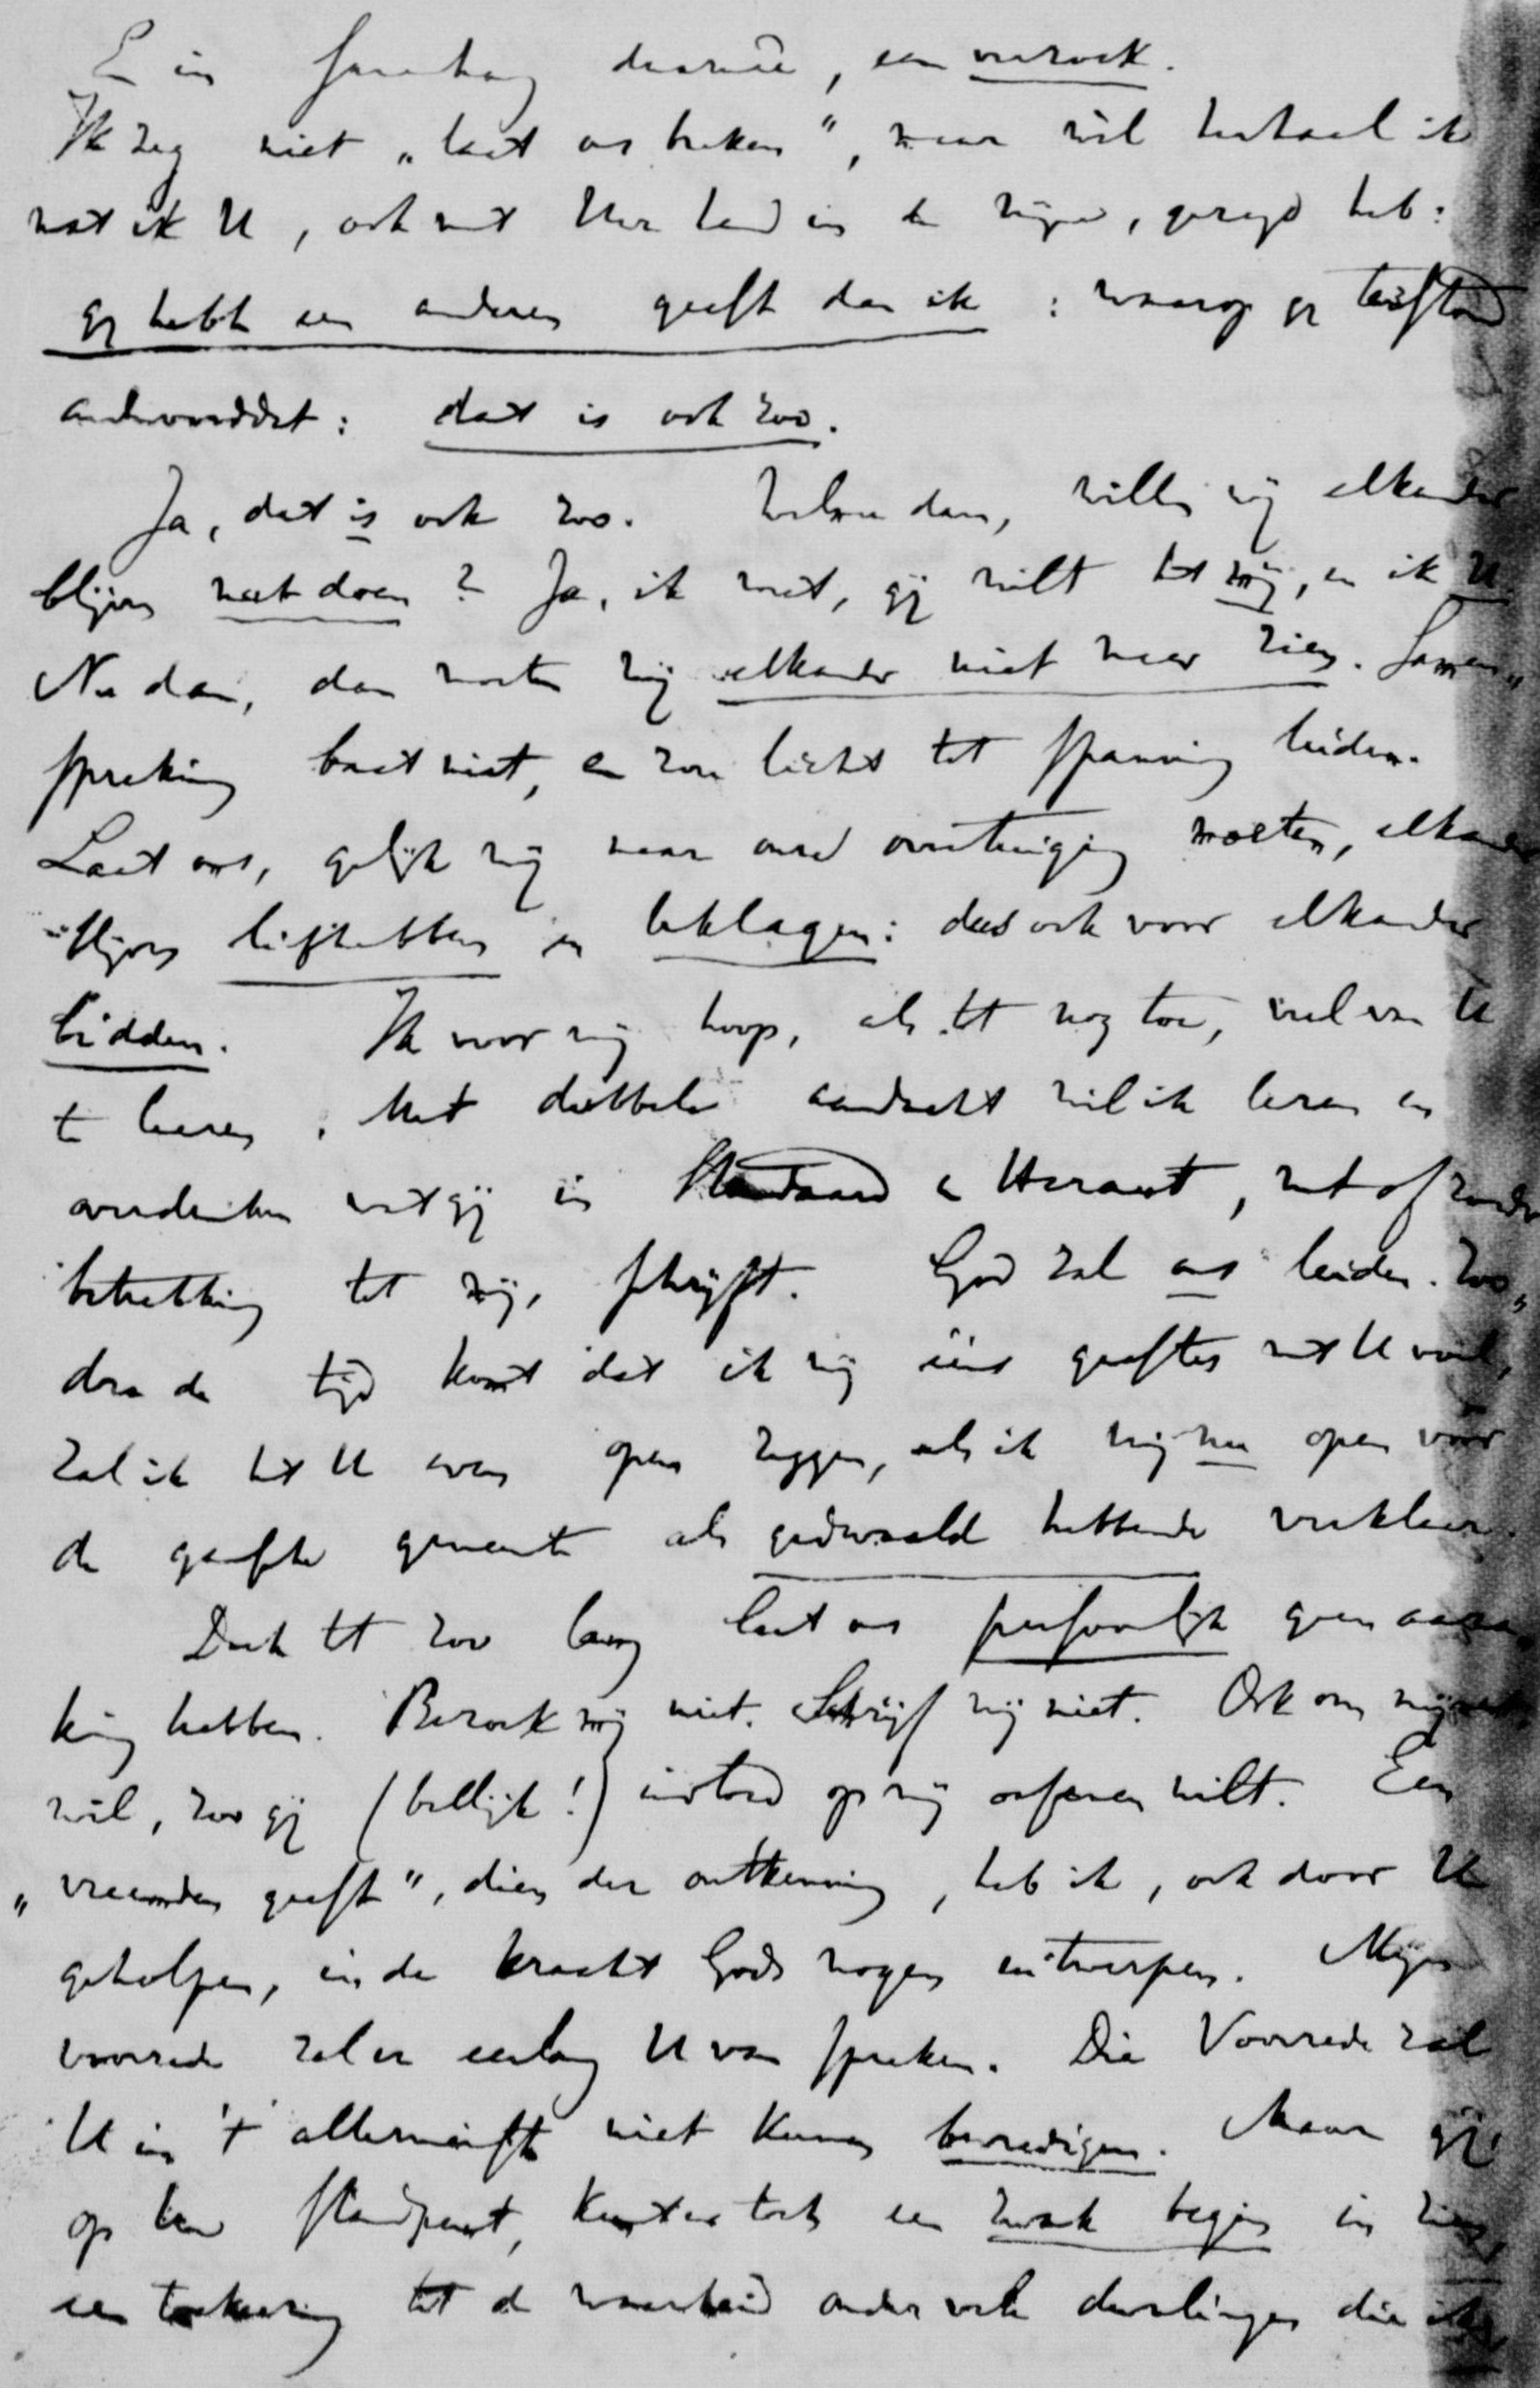 En in samenhang daarmeê, een verzoek.
Ik zeg niet „laat ons breken", maar wèl herhaal ik
wat ik U, ook met Uw hand in de mijne, gezegd heb:
gij hebt een anderen geest dan ik : waarop gij toestemd
antwoorddet: dat is ook zoo.
Ja, dat is ook zoo. Welnu dan, willen wij elkander
blijven wat doen? Ja, ik weet, gij wilt het mij, en ik U.
Nu dan, dan moeten wij elkander niet meer zien. Samen„
spreking baat niet, en zou licht tot spanning leiden.
Laat ons, gelijk wij naar onze overtuiging moeten, elkander
blijven liefhebben en beklagen: dus ook voor elkander
bidden. Ik voor mij hoop, als tot nog toe, veel van U
te leeren. Met dubbele aandacht wil ik lezen en
overdenken wat gij in Standaard en Heraut, met of zonder
betrekking tot mij, schrijft. God zal ons leiden. Zoo„
dra de tijd komt dat ik mij ééns geestes met U voel,
zal ik het U even open zeggen, als ik mij nu open vóór
de gansche gemeente als gedwaald hebbende verklaar.
Doch tot zoo lang laat ons persoonlijk geen aanra„
king hebben. Bezoek mij niet. Schrijf mij niet. Ook om mijnent
wil, zoo gij (bellijk!) invloed op mij oefenen wilt. Een
„vreemden geest", dien der ontkenning, heb ik, ook door U
geholpen, in de kracht Gods mogen uitwerpen. Mijne
voorrede zal er eerlang U van spreken. Die Voorrede zal
U in 't allerminste niet kunnen bevredigen. Maar gij,
op Uw standpunt, kunt er toch een zwak begin in zien,
een toekeering tot de waarheid onder vele dwalingen die ik